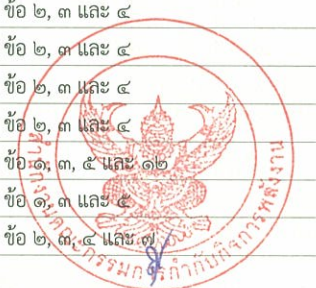 ข้อ ๒, ๓ และ ๔
ข้อ ๒, ๓ และ ๔
ข้อ ๒, ๓ และ ๔
ข้อ ๒, ๓ และ ๔
ข้อ ๑, ๓, ๕ และ ๑๒
ข้อ ๑, ๓ และ ๕
ข้อ ๒, ๓, ๔ และ ๗
สำนักงานคณะกรรมการกำกับกิจการพลังงาน